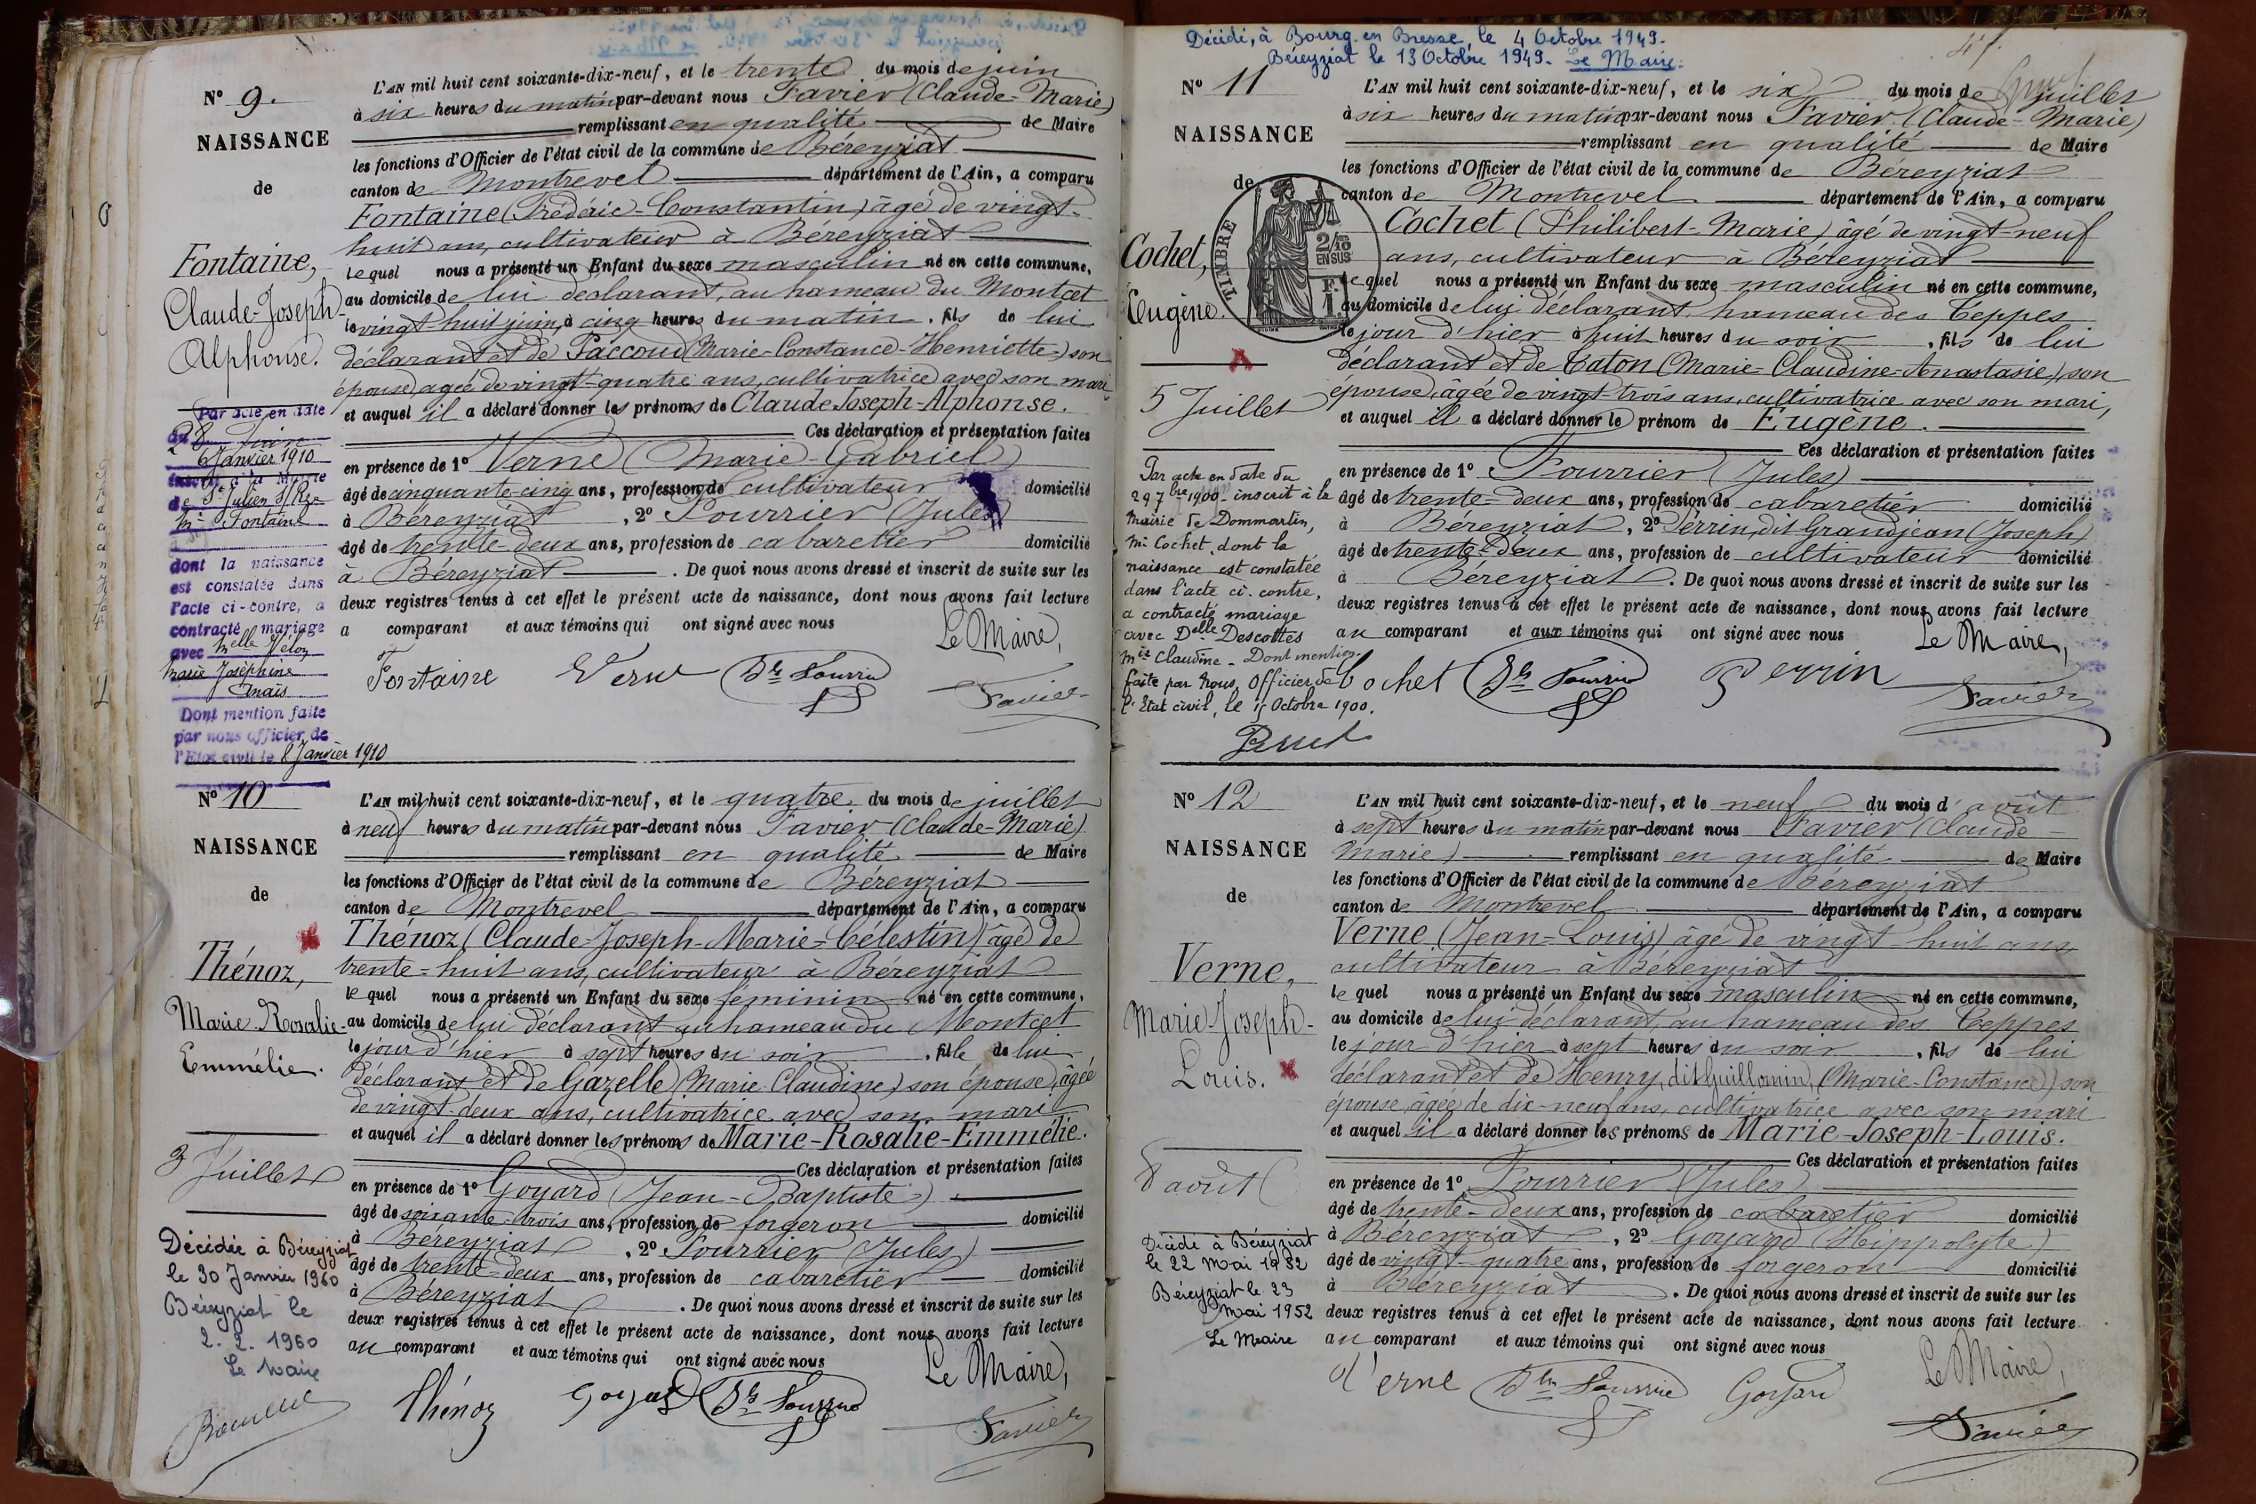 Nº 9.
NAISSANCE
de
Fontaine,
Claude-Joseph-
Alphonse.
Par acte en date
6 Janvier 1910
inscrit à la Mairie
de St Julien S/Rze
Mr Fontaine
dont la naissance
est constatée dans
l'acte ci-contre, a
contracté mariage
avec Melle Véloz
Marie Joséphine
Anaïs
Dont mention faite
par nous officier de
l'Etat civil le 8 Janvier 1910
L'AN mil huit cent soixante-dix-neuf, et le trente du mois de juin
à six heures du matin par-devant nous Favier (Claude-Marie)
remplissant en qualité de Maire
les fonctions d'Officier de l'état civil de la commune de Béreyziat
canton de Montrevel département de l'Ain, a comparu
Fontaine (Frédéric-Constantin) âgé de vingt-
huit ans, cultivateur à Béreyziat
lequel nous a présenté un Enfant du sexe masculin né en cette commune,
au domicile de lui déclarant, au hameau du Montcet
le vingt-huit juin, à cinq heures du matin, fils de lui
déclarant et de Paccoud (Marie-Constance-Henriette) son
épouse, agée de vingt-quatre ans, cultivatrice avec son mari
et auquel il a déclaré donner les prénoms de Claude Joseph-Alphonse.
Ces déclaration et présentation faites
en présence de 1º Verne (Marie-Gabriel)
âgé de cinquante-cinq ans, profession de cultivateur domicilié
à Béreyziat, 2º Pourrier (Jules)
âgé de trente-deux ans, profession de cabaretier domicilié
à Béreyziat. De quoi nous avons dressé et inscrit de suite sur les
deux registres tenus à cet effet le présent acte de naissance, dont nous avons fait lecture
a comparant et aux témoins qui ont signé avec nous
Le Maire,
Fontaine Verne Jles Pourrier Favier
Nº 10
NAISSANCE
de
Thénoz,
Marie-Rosalie-
Emmélie.
3 Juillet
Décédée à Béreyziat
le 30 Janvier 1960
Béreyziat le
2. 2. 1960
Le Maire
L'AN mil huit cent soixante-dix-neuf, et le quatre du mois de juillet
à neuf heures du matin par-devant nous Favier (Claude-Marie)
remplissant en qualité de Maire
les fonctions d'Officier de l'état civil de la commune de Béreyziat
canton de Montrevel département de l'Ain, a comparu
Thénoz (Claude-Joseph-Marie-Célestin) âgé de
trente-huit ans, cultivateur à Béreyziat
lequel nous a présenté un Enfant du sexe féminin né en cette commune,
au domicile de lui déclarant au hameau du Montcet
le jour d'hier à sept heures du soir, fille de lui
déclarant et de Gazelle (Marie Claudine) son épouse, âgée
de vingt-deux ans, cultivatrice avec son mari
et auquel il a déclaré donner les prénoms de Marie-Rosalie-Emmélie.
Ces déclaration et présentation faites
en présence de 1º Goyard (Jean-Baptiste)
âgé de soixante-trois ans, profession de forgeron domicilié
à Béreyziat, 2º Pourrier (Jules)
âgé de trente-deux ans, profession de cabaretier domicilié
à Béreyziat. De quoi nous avons dressé et inscrit de suite sur les
deux registres tenus à cet effet le présent acte de naissance, dont nous avons fait lecture
au comparant et aux témoins qui ont signé avec nous
Le Maire,
Thénoz Goyard Jles Pourrier Favier
Décédé, à Bourg en Bresse le 4 Octobre 1949.
Béreyziat le 13 Octobre 1949. Le Maire.
Nº 11
NAISSANCE
de
TIMBRE
2/10
EN SUS
Cochet,
Eugène.
A
5 Juillet
Par acte en date du
29 7bre 1900 inscrit à la
mairie de Dommartin,
Mr Cochet, dont la
naissance est constatée
dans l'acte ci-contre,
a contracté mariage
avec Delle Descottes
Mie Claudine - Dont mention
faite par Nous, Officier de
l'Etat civil, le 15 Octobre 1900.
L'AN mil huit cent soixante-dix-neuf, et le six du mois de juillet
à six heures du matin par-devant nous Favier (Claude-Marie)
remplissant en qualité de Maire
les fonctions d'Officier de l'état civil de la commune de Béreyziat
canton de Montrevel département de l'Ain, a comparu
Cochet (Philibert-Marie) âgé de vingt-neuf
ans, cultivateur à Béreyziat
lequel nous a présenté un Enfant du sexe masculin né en cette commune,
au domicile de lui déclarant hameau des Teppes
le jour d'hier à huit heures du soir, fils de lui
déclarant et de Caton (Marie-Claudine-Anastasie), son
épouse, âgée de vingt-trois ans, cultivatrice avec son mari,
et auquel il a déclaré donner le prénom de Eugène.
Ces déclaration et présentation faites
en présence de 1º Pourrier (Jules)
âgé de trente-deux ans, profession de cabaretier domicilié
à Béreyziat, 2º Perrin, dit Grandjean (Joseph)
âgé de trente-deux ans, profession de cultivateur domicilié
à Béreyziat. De quoi nous avons dressé et inscrit de suite sur les
deux registres tenus à cet effet le présent acte de naissance, dont nous avons fait lecture
au comparant et aux témoins qui ont signé avec nous
Le Maire,
Cochet Jles Pourrier Perrin Favier
Nº 12
NAISSANCE
de
Verne,
Marie-Joseph-
Louis.
8 août
Décédé à Béreyziat
le 22 Mai 1952
Béreyziat le 23
Mai 1952
Le Maire
L'AN mil huit cent soixante-dix-neuf, et le neuf du mois d'août
à sept heures du matin par-devant nous Favier (Claude
Marie) remplissant en qualité de Maire
les fonctions d'Officier de l'état civil de la commune de Béreyziat
canton de Montrevel département de l'Ain, a comparu
Verne (Jean-Louis) âgé de vingt-huit ans,
cultivateur à Béreyziat
lequel nous a présenté un Enfant du sexe masculin né en cette commune,
au domicile de lui déclarant, au hameau des Teppes
le jour d'hier à sept heures du soir, fils de lui
déclarant et de Henry, dit Guillomin, (Marie-Constance) son
épouse, âgée de dix-neuf ans, cultivatrice avec son mari
et auquel il a déclaré donner les prénoms de Marie-Joseph-Louis.
Ces déclaration et présentation faites
en présence de 1º Pourrier (Jules)
âgé de trente-deux ans, profession de cabaretier domicilié
à Béreyziat, 2º Goyard (Hippolyte)
âgé de vingt-quatre ans, profession de forgeron domicilié
à Béreyziat. De quoi nous avons dressé et inscrit de suite sur les
deux registres tenus à cet effet le présent acte de naissance, dont nous avons fait lecture
au comparant et aux témoins qui ont signé avec nous
Le Maire,
Verne Jles Pourrier Goyard Favier